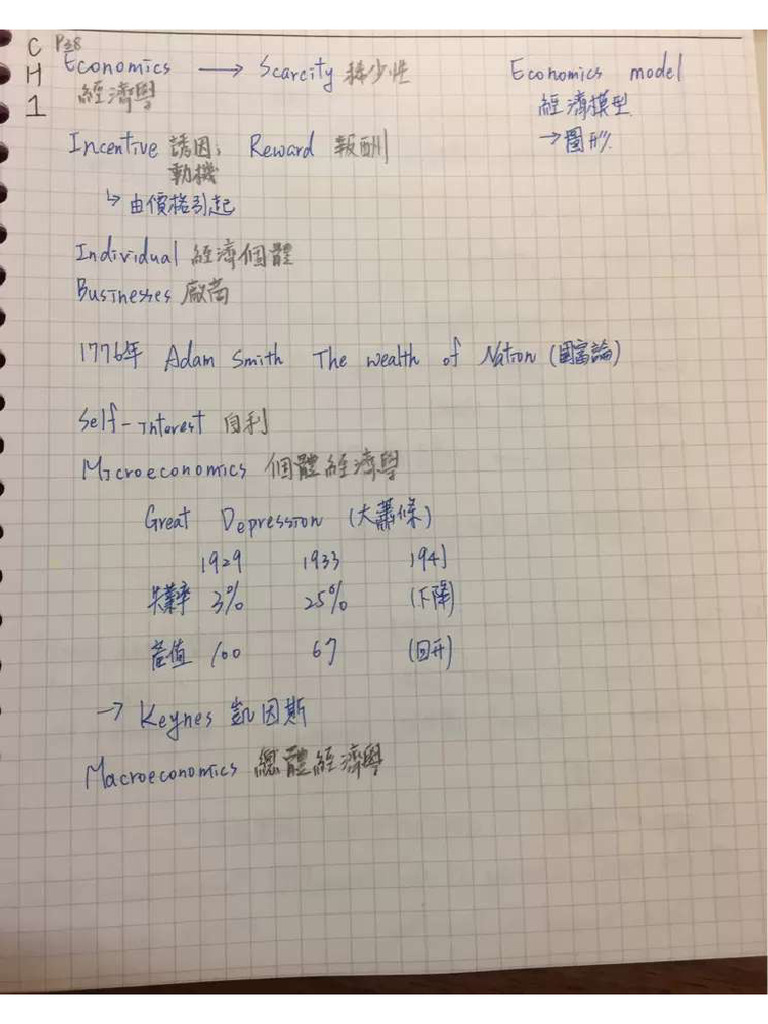 CH1
P38
Economics → Scarcity 稀少性
經濟學
Economics model
經濟模型
→圖形
Incentive 誘因; Reward 報酬
動機
↳ 由價格引起
Individual 經濟個體
Businesses 廠商
1776年 Adam Smith The wealth of Nation (國富論)
Self-interest 自利
Microeconomics 個體經濟學
Great Depression (大蕭條)
1929 1933 1941
失業率 3% 25% (下降)
產值 100 67 (回升)
→ Keynes 凱因斯
Macroeconomics 總體經濟學